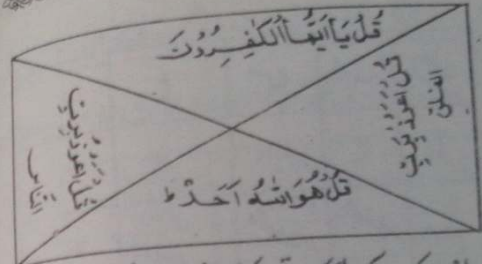 قُلْ يَا أَيُّهَا الْكَٰفِرُوْنَ
قُلْ اَعُوْذُ بِرَبِّ
الفلق
قُلْ هُوَ اللّٰهُ اَحَدٌ ط
قُلْ اَعُوْذُ بِرَبِّ
النَّاس